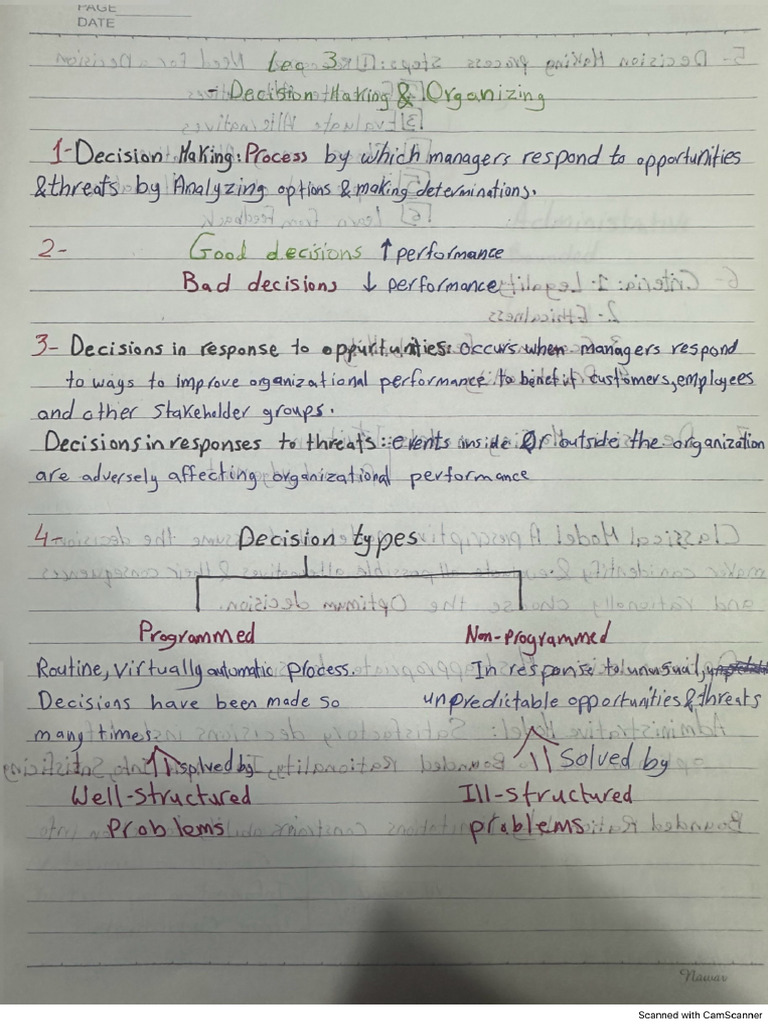 PAGE
DATE
Lec 3
- Decision Making & Organizing
1- Decision Making: Process by which managers respond to opportunities
& threats by Analyzing options & making determinations.
2- Good decisions ↑ performance
Bad decisions ↓ performance
3- Decisions in response to oppurtunities: occurs when managers respond
to ways to improve organizational performance to benefit customers, employees
and other stakeholder groups.
Decisions in responses to threats: events inside Or outside the organization
are adversely affecting organizational performance
4- Decision types
Programmed
Routine, virtually automatic process.
Decisions have been made so
many times
solved by
Well-structured
Problems
Non-programmed
In response to unusual,
unpredictable opportunities & threats
Solved by
Ill-structured
problems
Nawar
Scanned with CamScanner